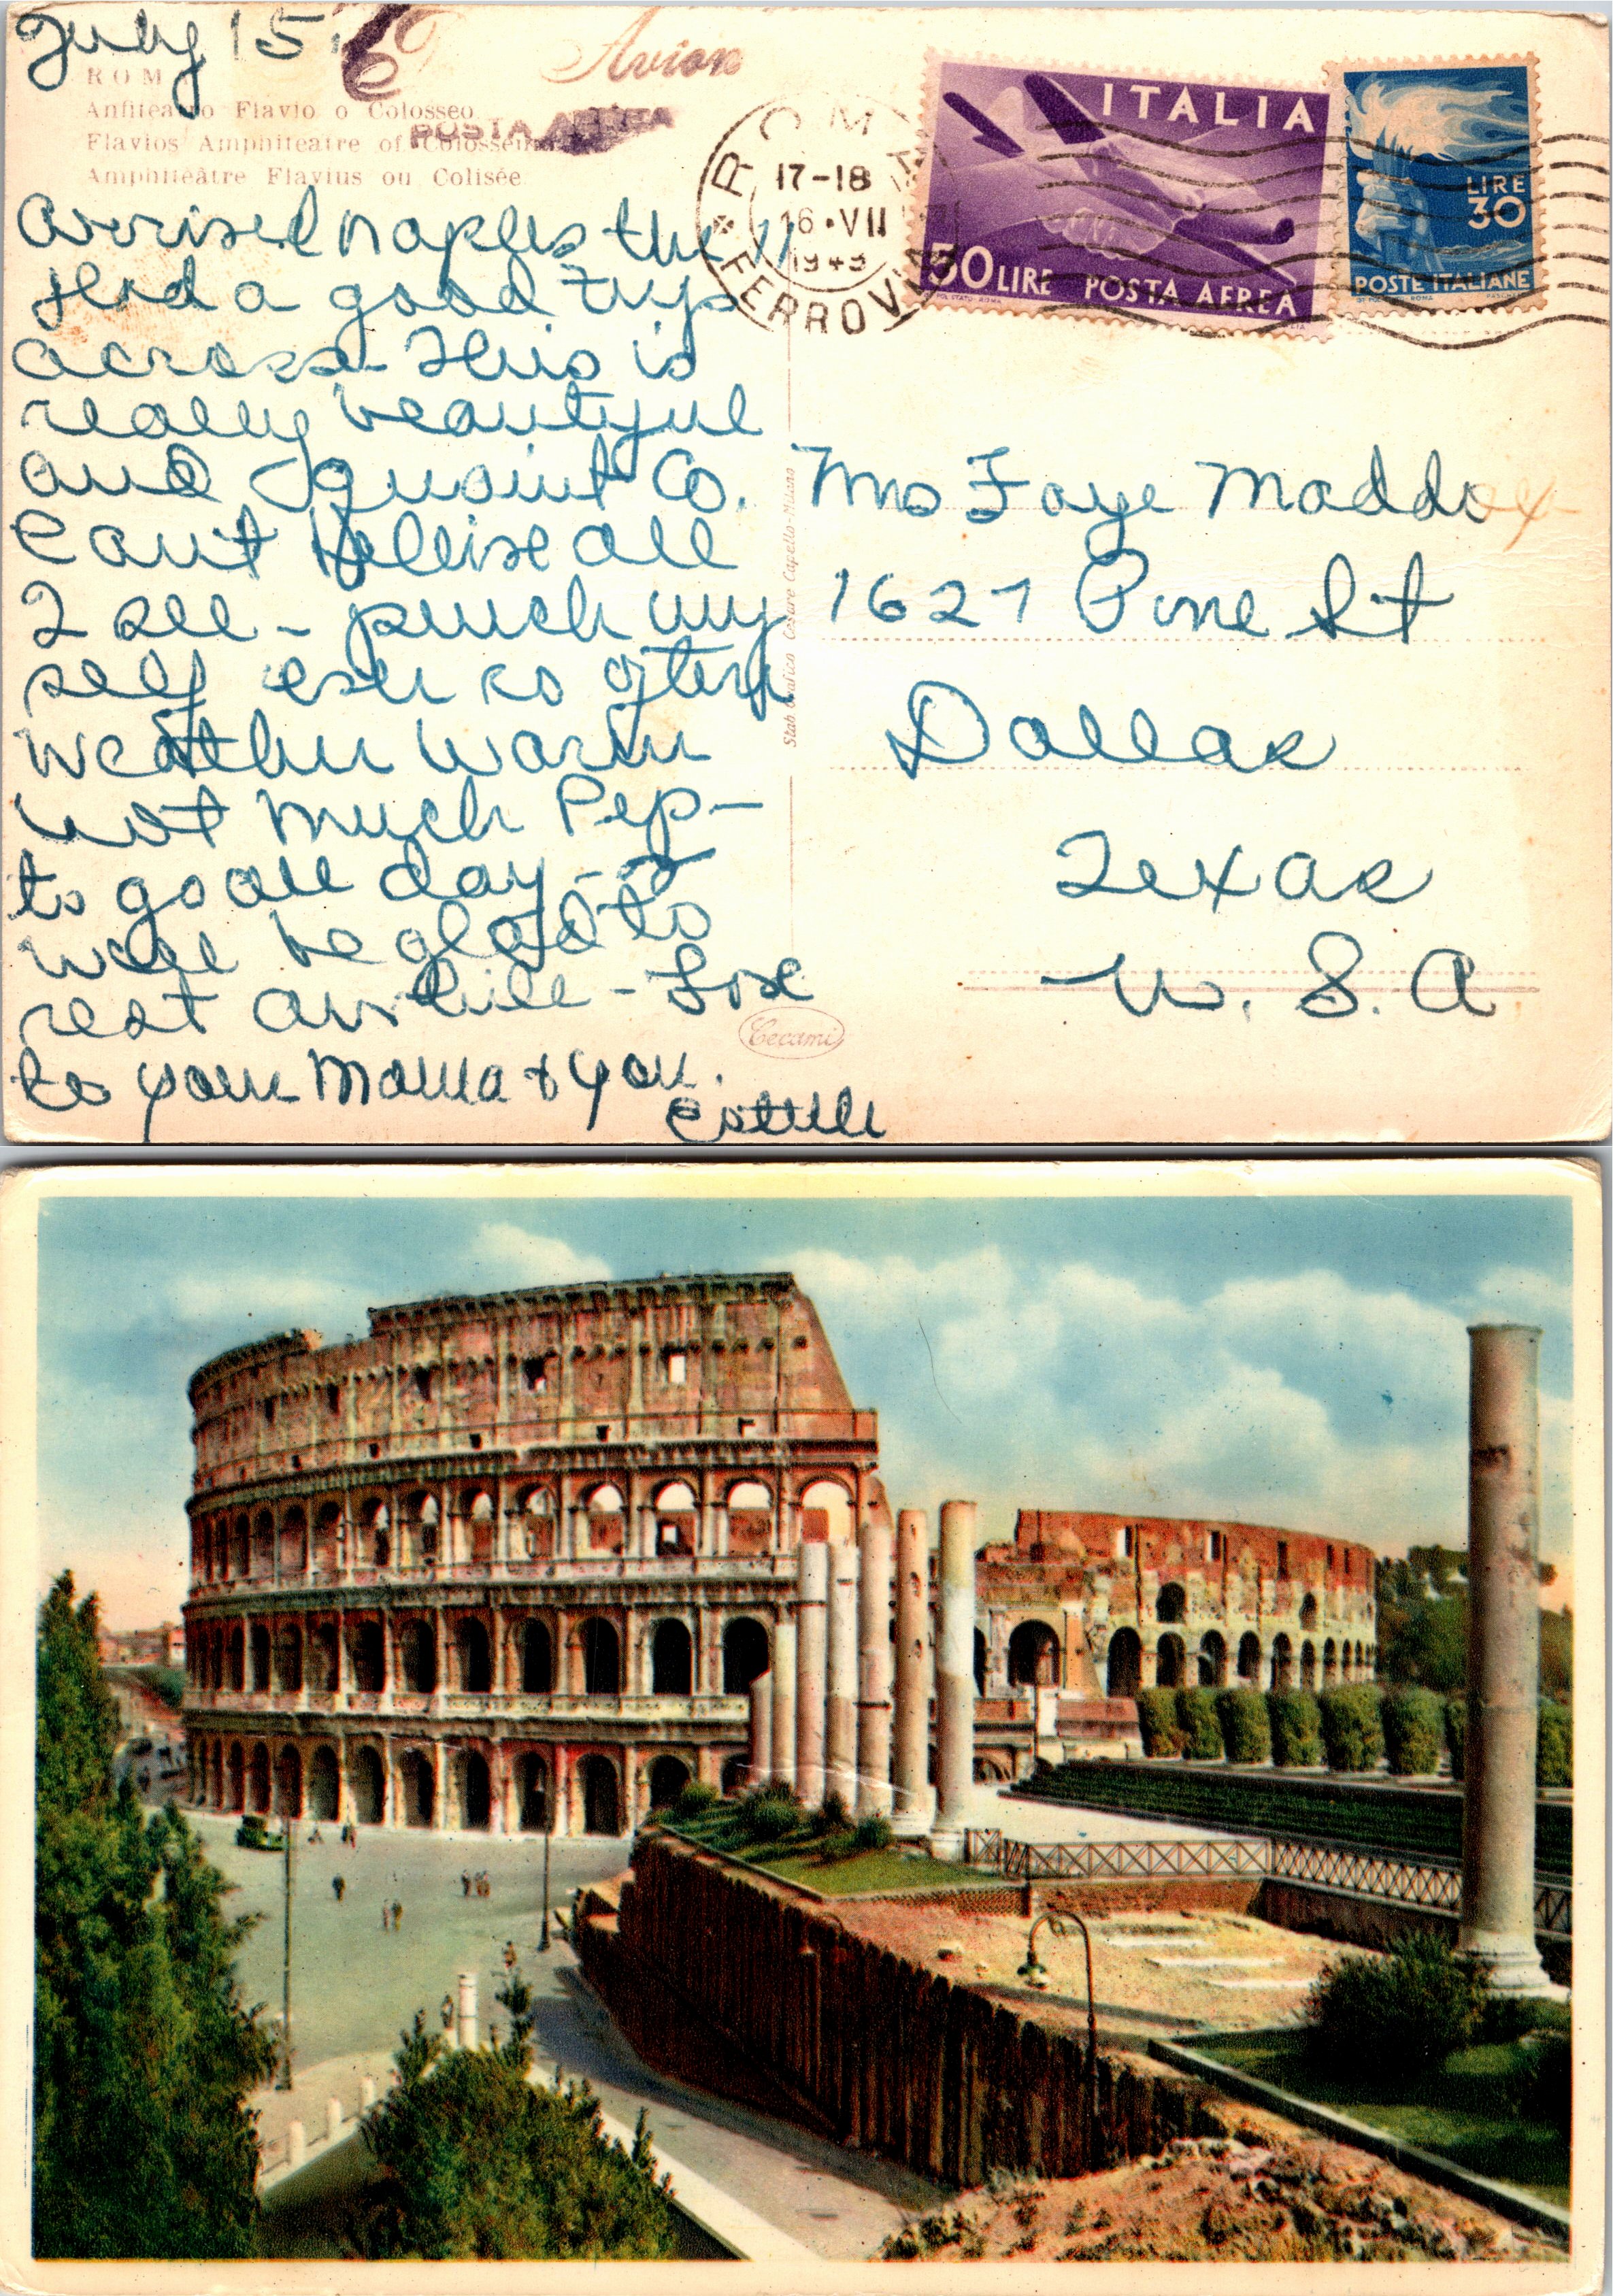 July 15.
Avion
ROMA
Anfiteatro Flavio o Colosseo
Flavios Amphiteatre of Colosseum
Amphitéâtre Flavius ou Colisée
POSTA AEREA
ROMA FERROVIA
17-18
16·VII
1949
ITALIA
50 LIRE POSTA AEREA
LIRE
30
POSTE ITALIANE
Arrived Naples the 11
Had a good trip
across - This is
really beautiful
and quaint Co.
Can't believe all
I see - pinch my
self ever so often
weather warm
not much Pep -
to go all day - I
will be glad to
rest awhile - Love
to your Mama & you.
Estelle
Mrs Faye Maddox
1627 Pine St
Dallas
Texas
U.S.A
Stab Grafico Cesare Capello-Milano
Cecami